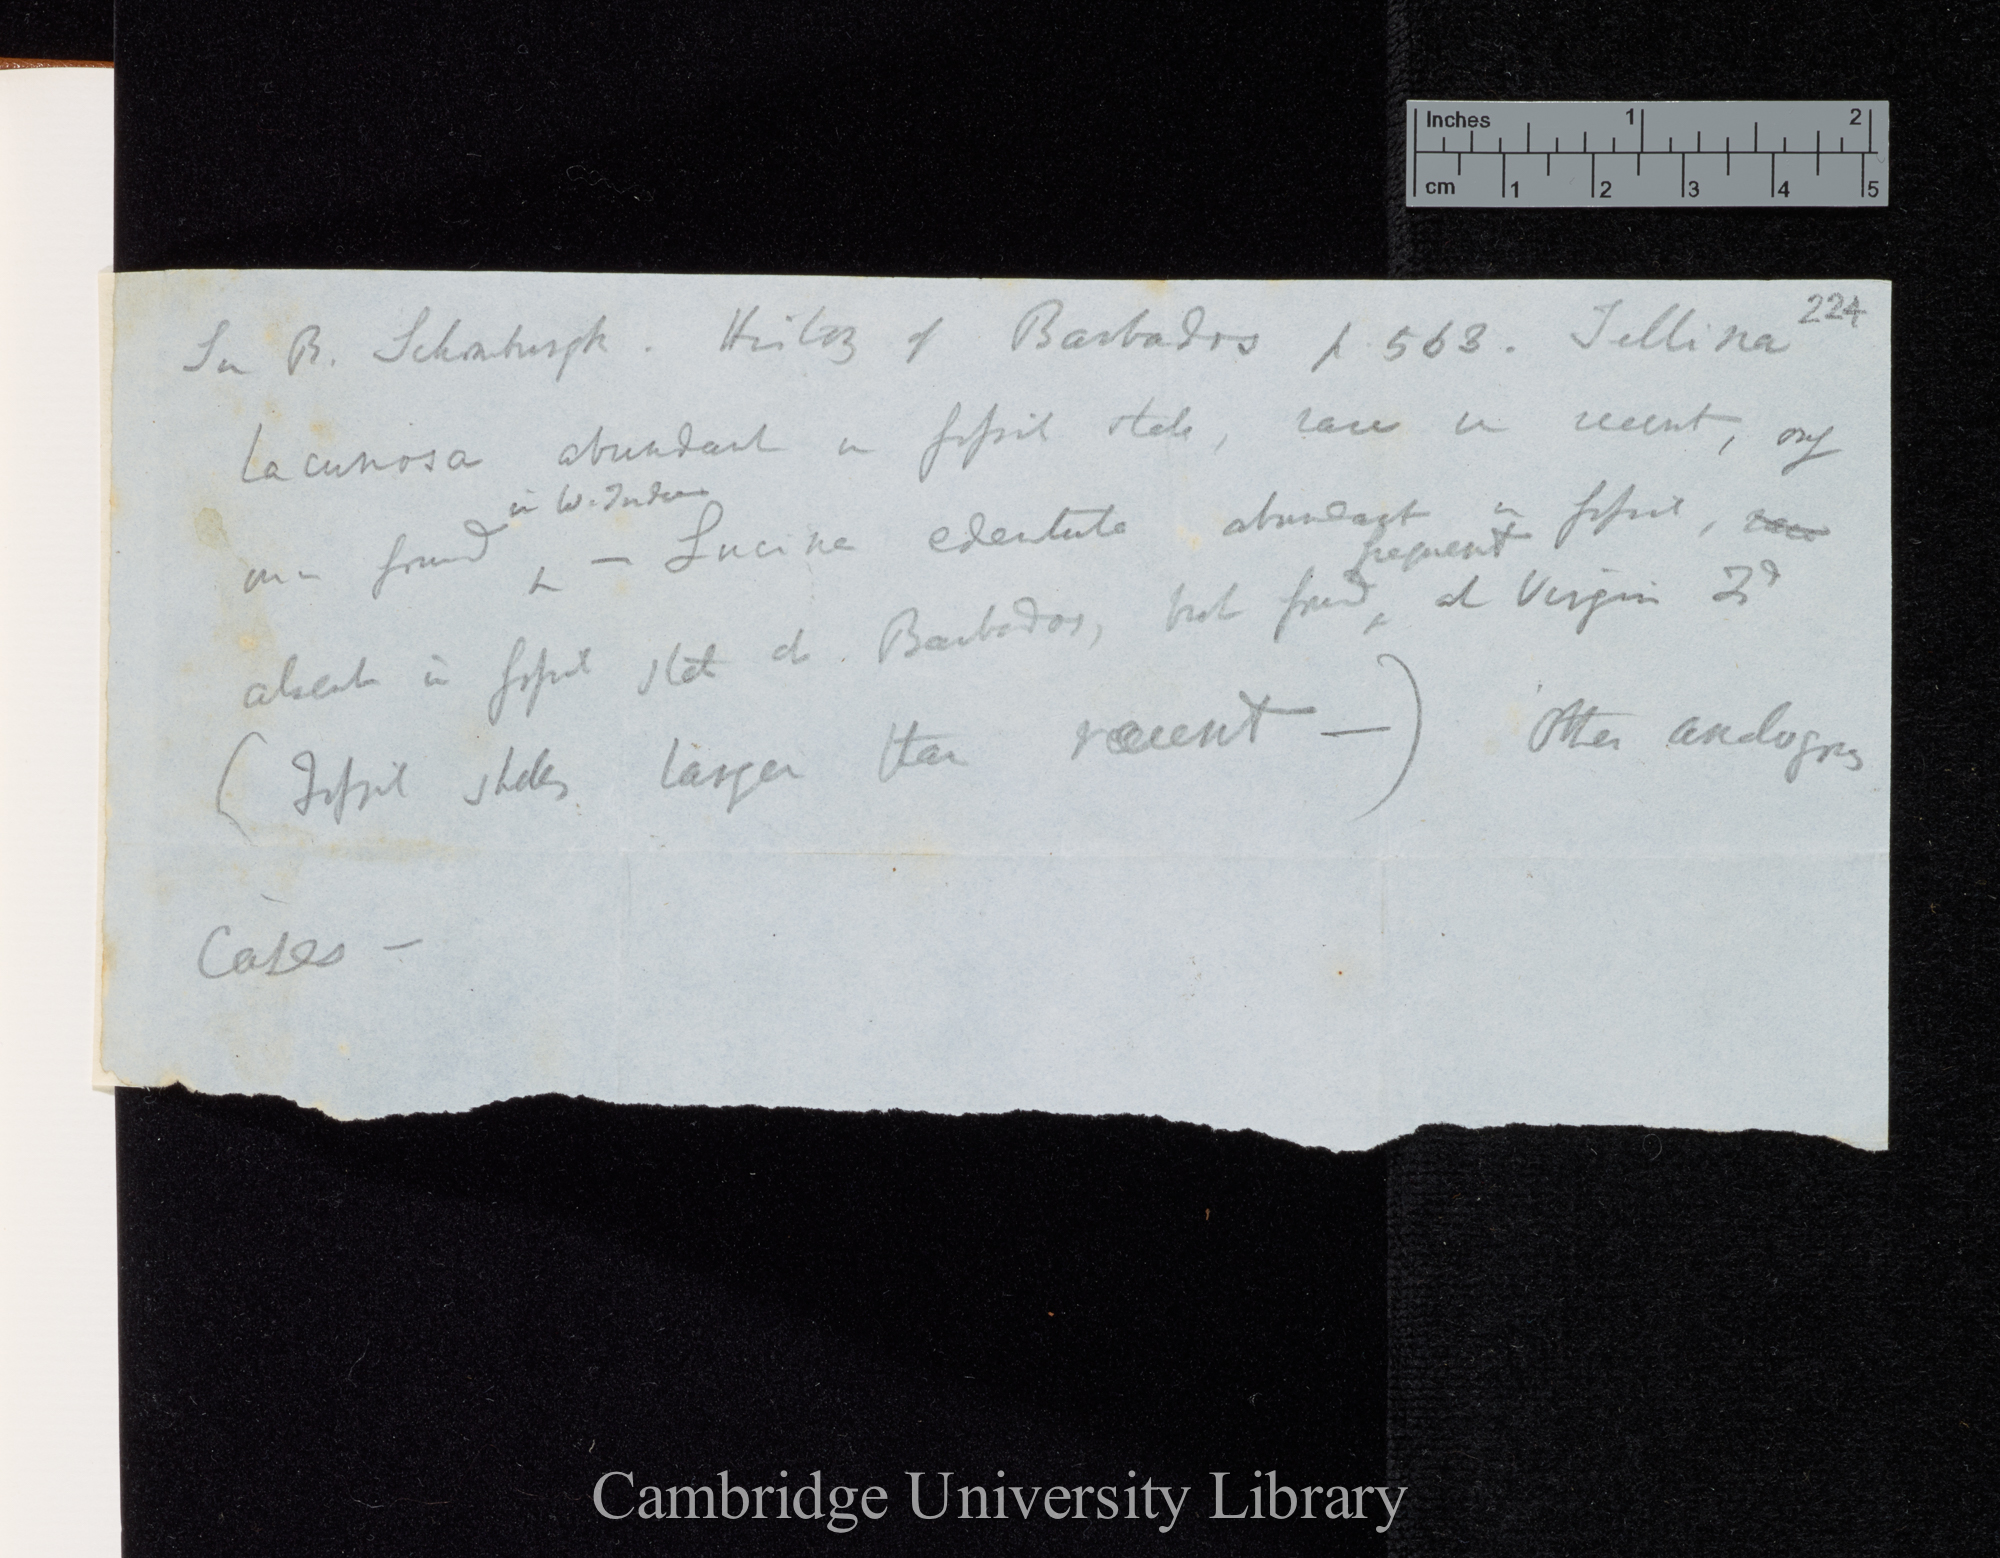 Inches 1 2
cm 1 2 3 4 5
224
Sir R. Schomburgk. History of Barbados p 563. Tellina
lacunosa abundant in fossil state, rare in recent, only
one found in W. Indies — Lucina edentula abundant in fossil, rare
absent in fossil state at Barbados, but found frequent at Virgin Isd
(Fossil shells larger than recent —) Other analogous
Cases —
Cambridge University Library